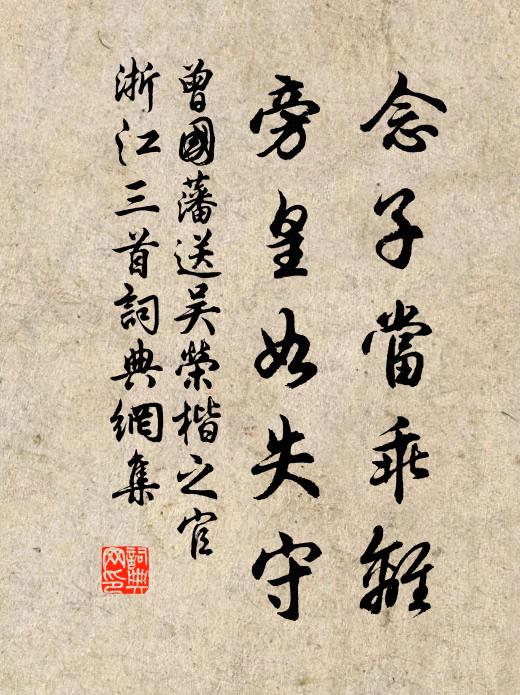 念子當乖離
旁皇如失守
曾國藩送吴榮楷之官
浙江三首詞典網集
詞典網印